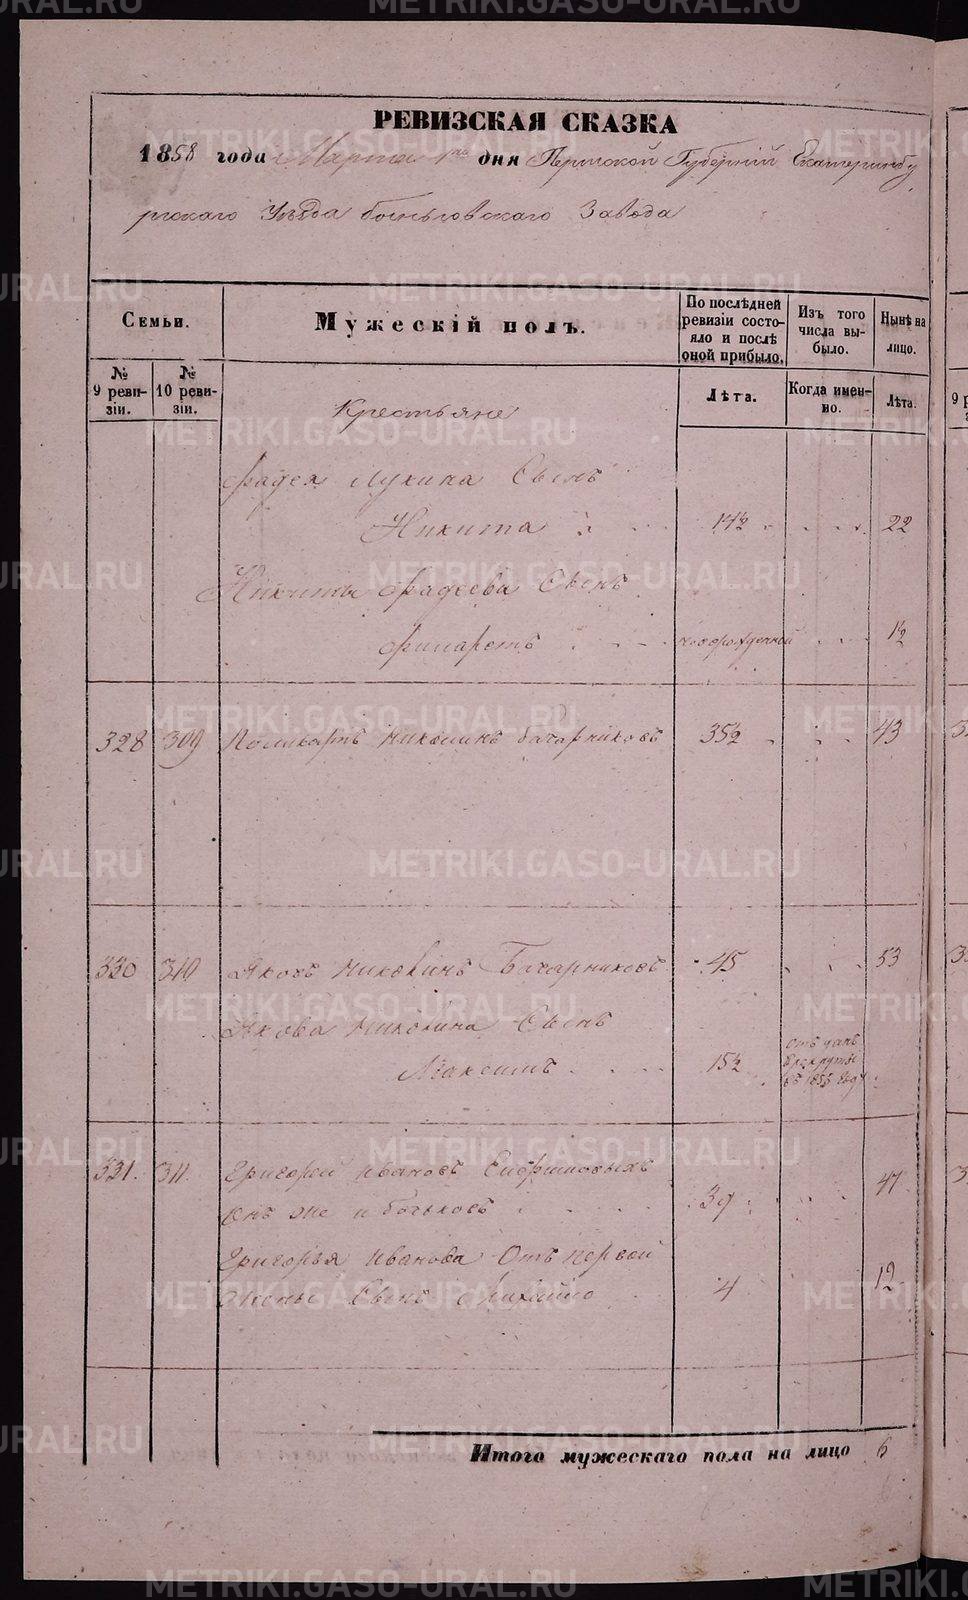 РЕВИЗСКАЯ СКАЗКА
1858 года Марта 1го дня Пермской Губерній Екатеринбу
ргскаго Уѣзда Завода
Семьи.
Мужескій полъ.
По послѣдней ревизіи состояло и послѣ оной прибыло.
Изъ того числа выбыло.
Нынѣ на лицо.
№ 9 ревизіи.
№ 10 ревизіи.
Лѣта.
Когда именно.
Лѣта.
Крестьяне
Фадея Лукина Сынъ
Никита 14½ 22
Никиты Фадеева Сынъ
Филаретъ новорожденной 1½
328 309 Поликарпъ 35½ 43
330 310 Яковъ Бочарниковъ 45 53
Якова Сынъ
Максимъ 15½ въ 1855 году
331. 311. Григорей Ивановъ
Онъ же и 39 47
Григорья Иванова Отъ первой
жены Сынъ Михайло 4 12
Итого мужескаго пола на лицо 6
METRIKI.GASO-URAL.RU